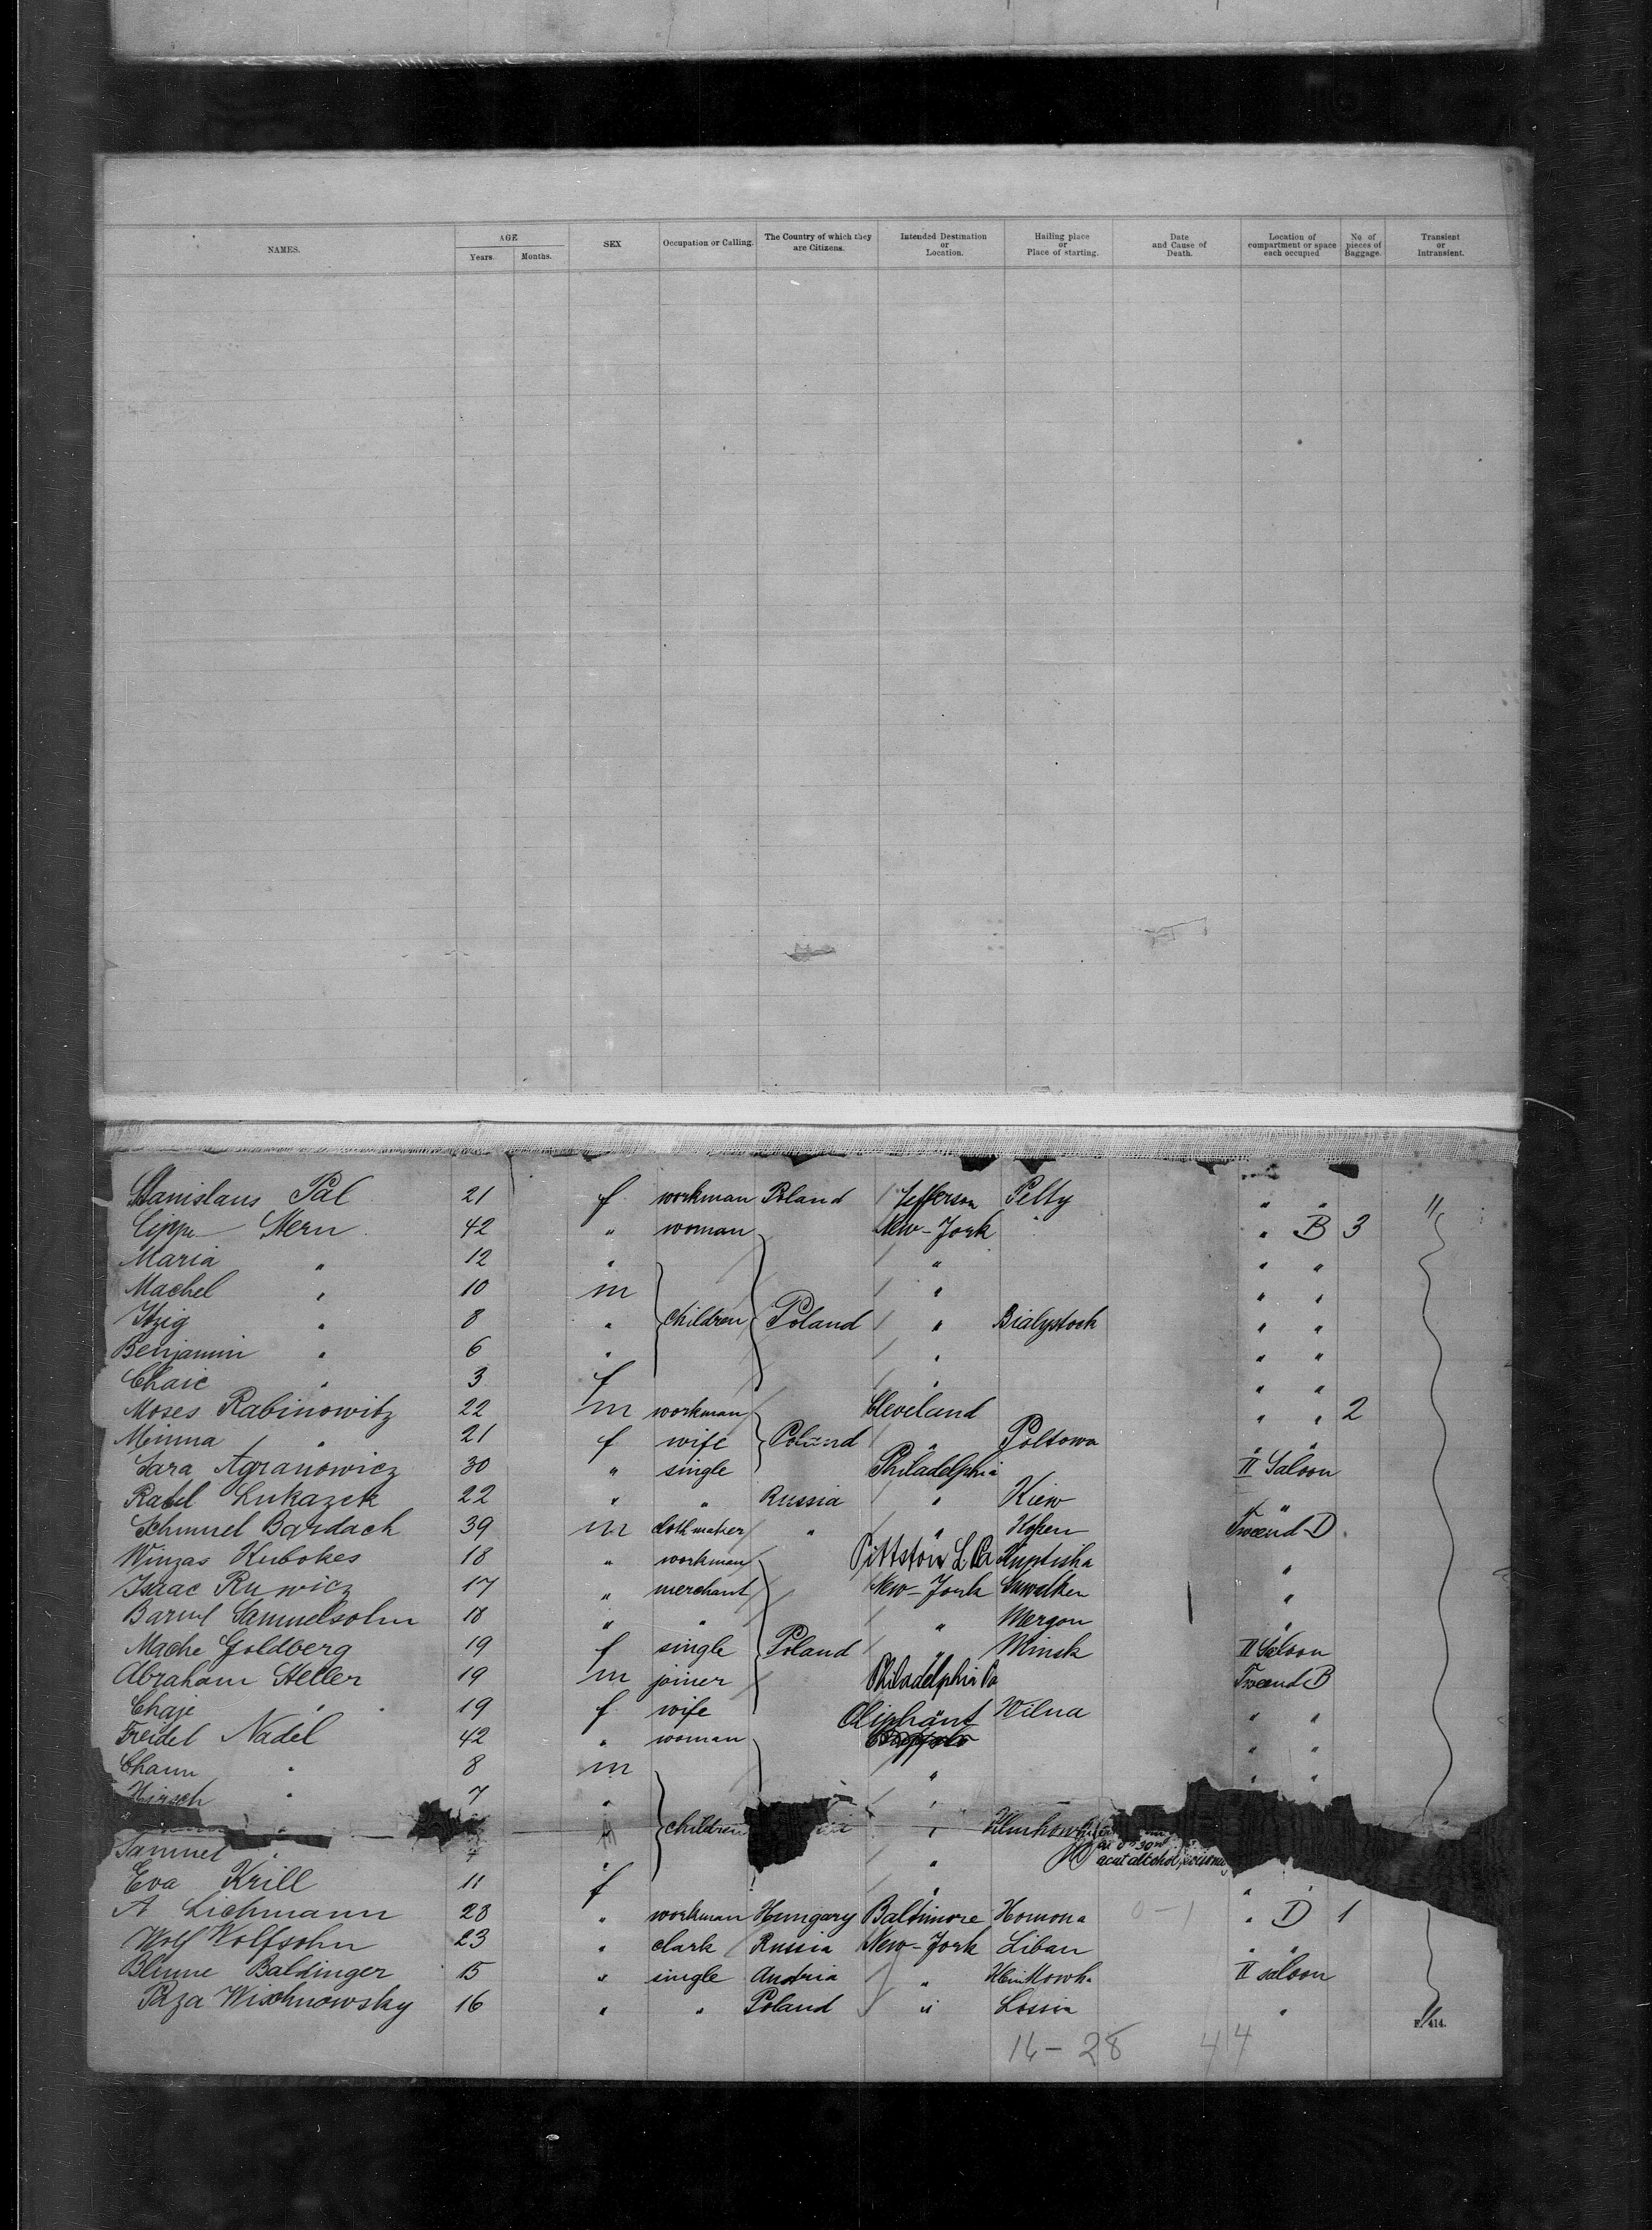 NAMES. AGE Years. Months. SEX Occupation or Calling. The Country of which they are Citizens. Intended Destination or Location. Hailing place or Place of starting. Date and Cause of Death. Location of compartment or space each occupied No. of pieces of Baggage. Transient or Intransient.
Stanislaus Pal 21 f workman Poland Jefferson Pelty " " "
Stern 42 " woman New-York " B 3
Maria " 12 " " " "
Machel " 10 m " " "
Itzig " 8 " children Poland " Bialystock " "
Benjamin " 6 " " " "
Chaie " 3 f " " "
Moses Rabinowitz 22 m workman Cleveland " " 2
Minna " 21 f wife Poland " Poltowa " "
Sara Agranowicz 30 " single Philadelphia II Saloon
Lukazek 22 " " Russia " Kiew "
Schmuel Bardach 39 m clothmaker " " D
Winzas Kubokes 18 " workman Pittston "
Isaac 17 " merchant New-York "
Samuelsohn 18 " " " Mergon "
Mache Goldberg 19 f single Poland " Minsk II Saloon
Abraham Heller 19 m joiner Philadelphia Pa B
Chaje " 19 f wife Oliphant Wilna " "
Freidel Nadel 42 " woman " "
" 8 m " " "
Hirsch " 7 " "
children "
Samuel " " "
Eva Krill 11 f " "
A Lichmann 28 " workman Hungary Baltimore Homona " D 1
Wolf Wolfsohn 23 " clark Russia New-York Libau " "
Baldinger 15 " single Austria " II saloon
Wischnowsky 16 " " Poland " "
F. 414.
16 - 28 44